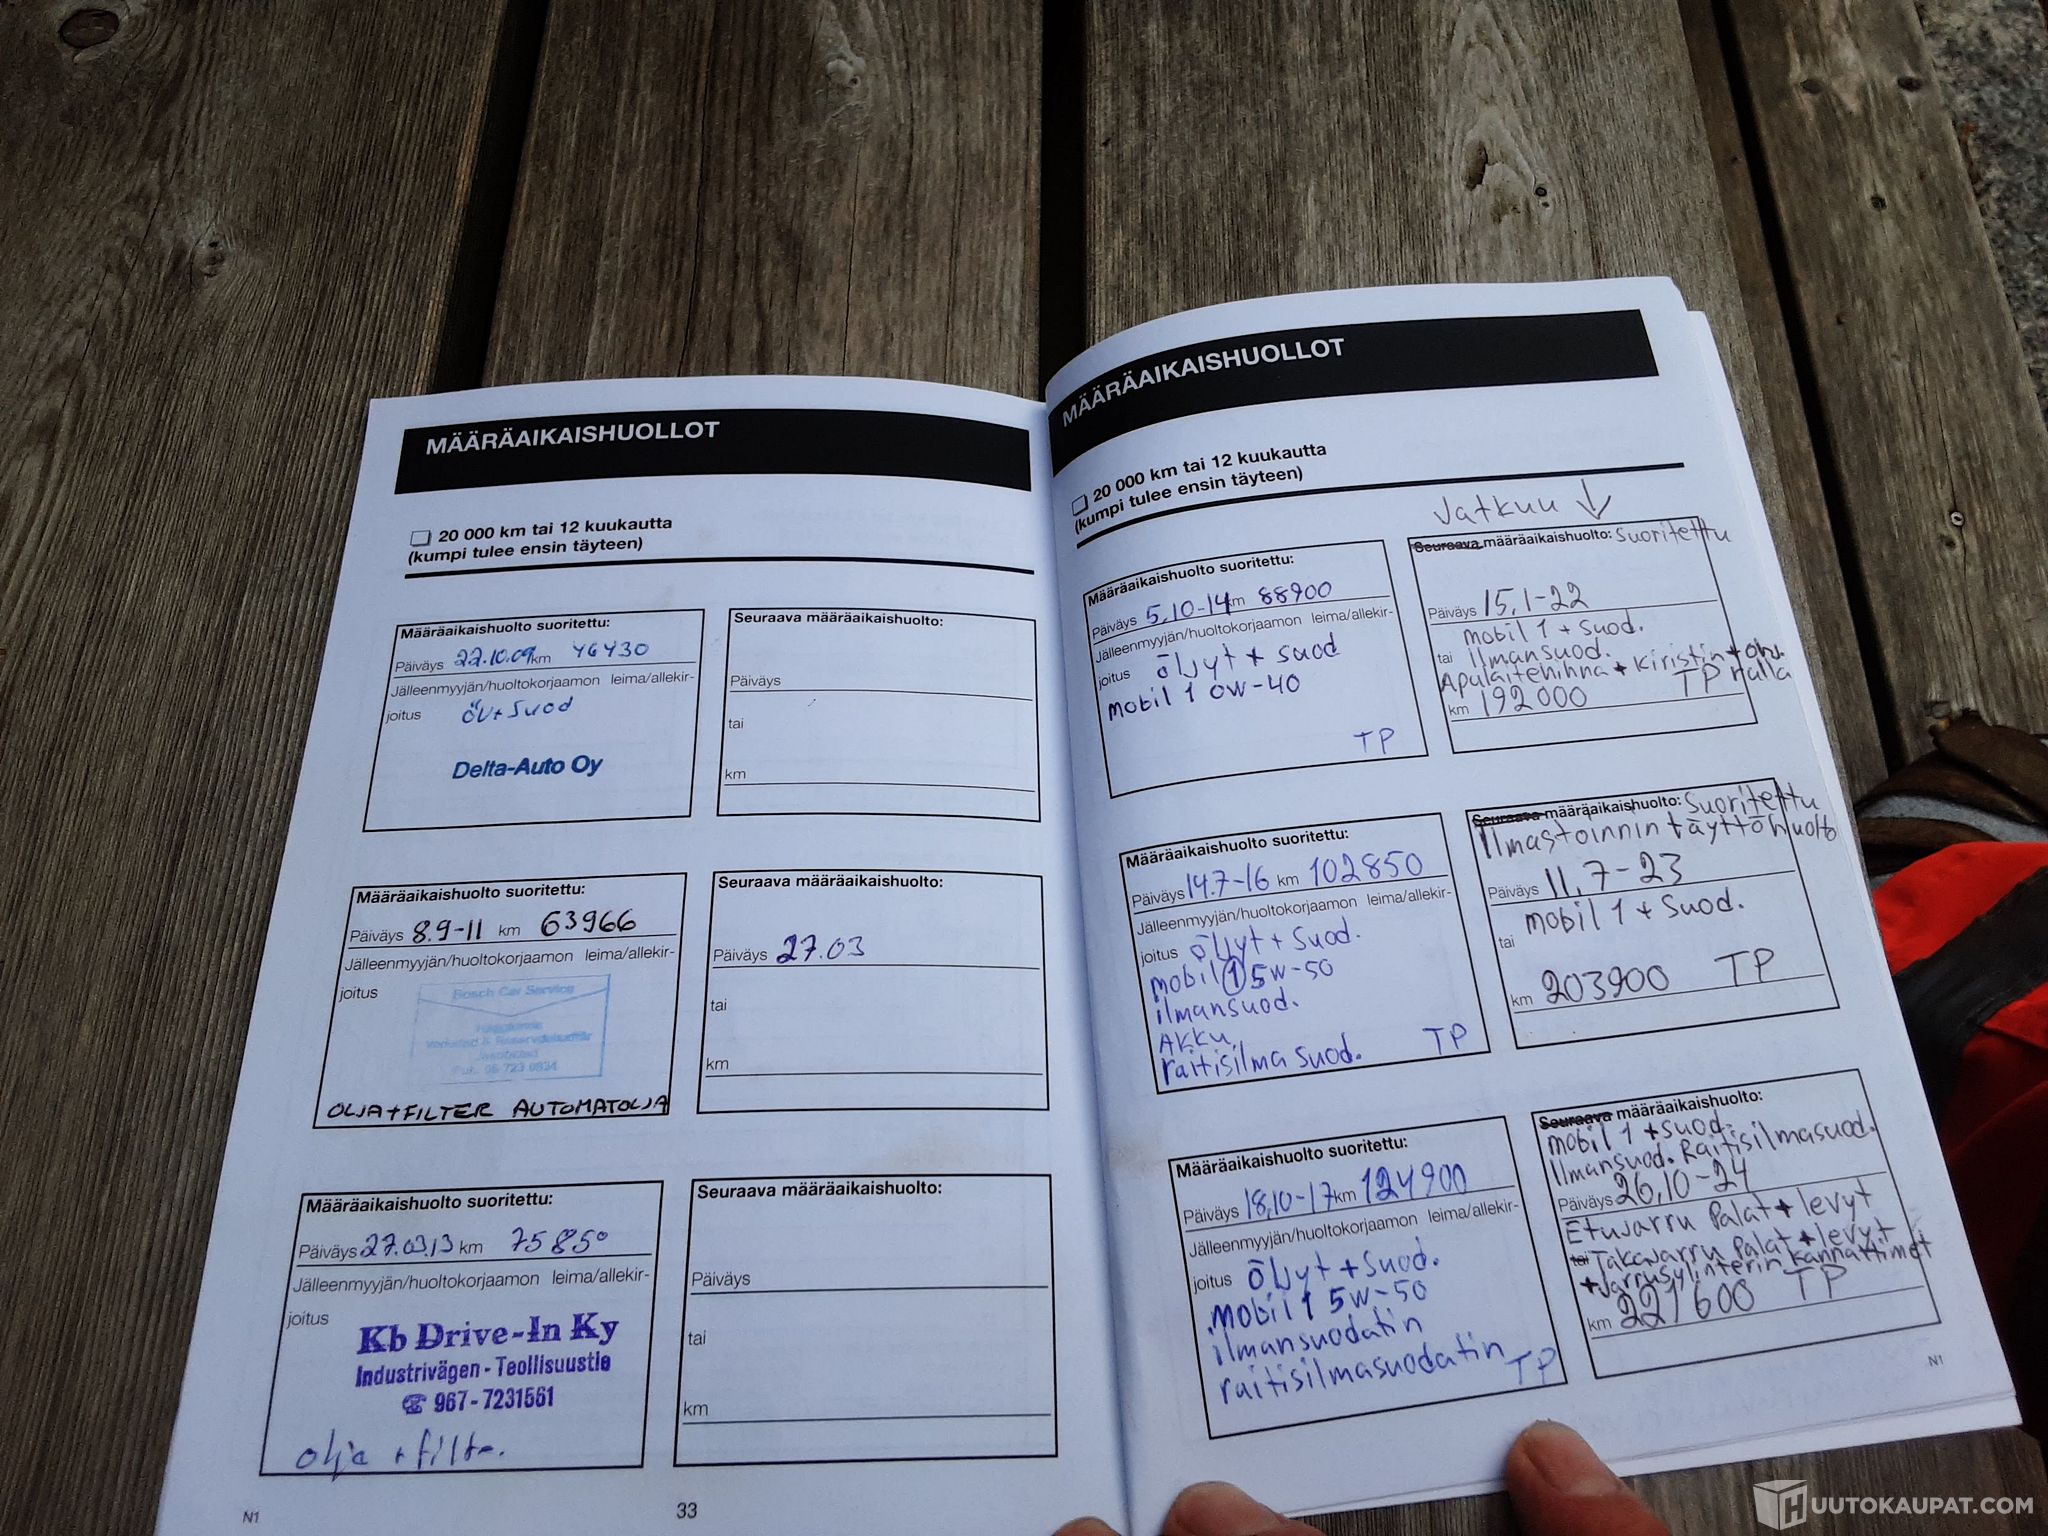 MÄÄRÄAIKAISHUOLLOT
20 000 km tai 12 kuukautta
(kumpi tulee ensin täyteen)
Määräaikaishuolto suoritettu:
Päiväys 22.10.09 km 46430
Jälleenmyyjän/huoltokorjaamon leima/allekir-
joitus
+ Suod
Delta-Auto Oy
Seuraava määräaikaishuolto:
Päiväys
tai
km
Määräaikaishuolto suoritettu:
Päiväys 8.9-11 km 63966
Jälleenmyyjän/huoltokorjaamon leima/allekir-
joitus
Bosch Car Service
OLJA+FILTER AUTOMATOLJA
Seuraava määräaikaishuolto:
Päiväys 27.03
tai
km
Määräaikaishuolto suoritettu:
Päiväys 27.03.13 km 75850
Jälleenmyyjän/huoltokorjaamon leima/allekir-
joitus
Kb Drive-In Ky
Industrivägen - Teollisuustie
☎ 967-7231561
olja + filter
Seuraava määräaikaishuolto:
Päiväys
tai
km
N1
33
MÄÄRÄAIKAISHUOLLOT
20 000 km tai 12 kuukautta
(kumpi tulee ensin täyteen)
Määräaikaishuolto suoritettu:
Päiväys 5,10-14 km 88900
Jälleenmyyjän/huoltokorjaamon leima/allekir-
joitus öljyt + suod
mobil 1 0W-40
TP
Jatkuu ↓
Seuraava määräaikaishuolto: Suoritettu
Päiväys 15,1-22
mobil 1 + Suod.
tai Ilmansuod.
Apulaitehihna + kiristin + ohj.
rulla
km 192000 TP
Määräaikaishuolto suoritettu:
Päiväys 14.7-16 km 102850
Jälleenmyyjän/huoltokorjaamon leima/allekir-
joitus öljyt + Suod.
mobil 1 5W-50
ilmansuod.
AKKU
raitisilma suod. TP
Seuraava määräaikaishuolto: Suoritettu
Ilmastoinnin täyttöhuolto
Päiväys 11,7-23
mobil 1 + Suod.
tai
km 203900 TP
Määräaikaishuolto suoritettu:
Päiväys 18,10-17 km 124900
Jälleenmyyjän/huoltokorjaamon leima/allekir-
joitus öljyt + Suod.
mobil 1 5W-50
ilmansuodatin
raitisilmasuodatin TP
Seuraava määräaikaishuolto:
mobil 1 + suod.
Ilmansuod. Raitisilmasuod.
Päiväys 26,10-24
Etujarru Palat + levyt
tai Takajarru Palat + levyt
+ Jarrusylinterin kannattimet
km 221600 TP
N1
HUUTOKAUPAT.COM